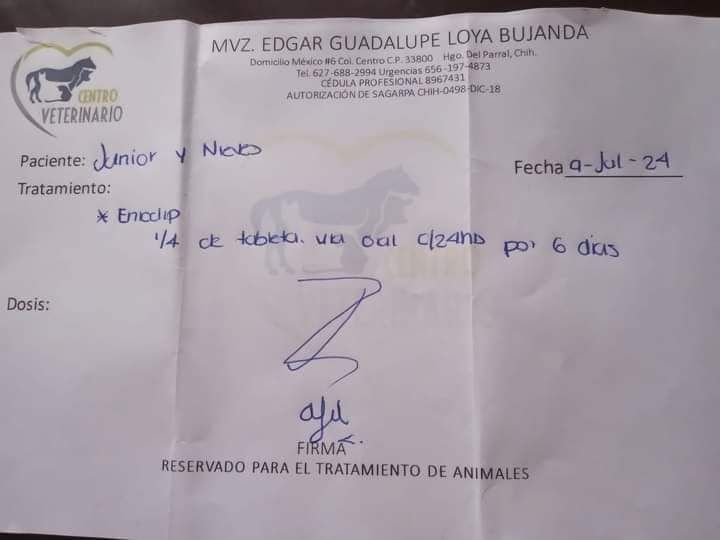 MVZ. EDGAR GUADALUPE LOYA BUJANDA
Domicilio México #6 Col. Centro C.P. 33800 Hgo. Del Parral, Chih.
Tel. 627-688-2994 Urgencias 656-197-4873
CÉDULA PROFESIONAL 8967431
AUTORIZACIÓN DE SAGARPA CHIH-0498-DIC-18
CENTRO
VETERINARIO
Paciente: Junior y
Fecha 9-Jul-24
Tratamiento:
*
1/4 de tableta. via oral c/24hs por 6 dias
Dosis:
FIRMA
RESERVADO PARA EL TRATAMIENTO DE ANIMALES